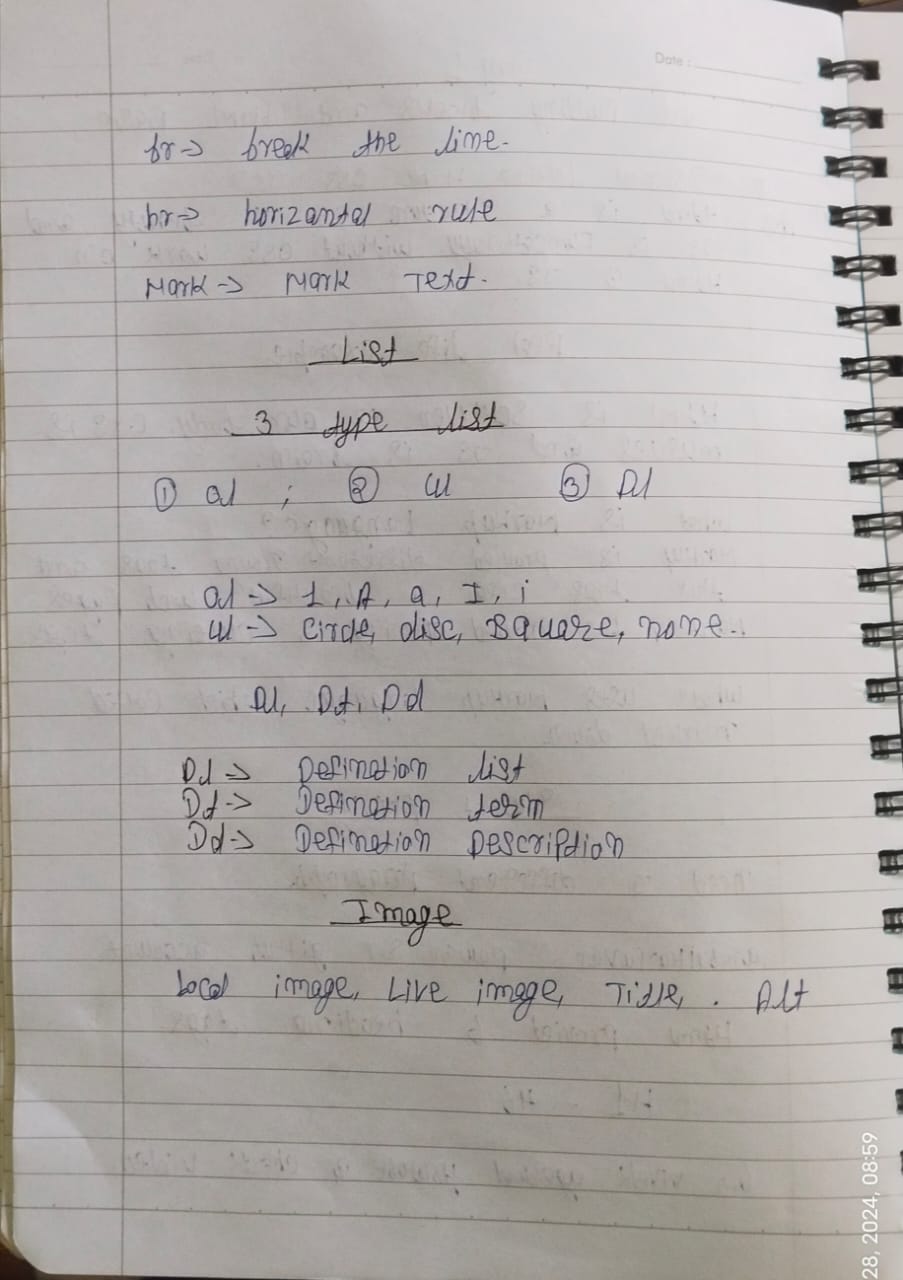 Date :
br-> break the line.
hr-> horizantal rule
Mark-> Mark Text.
List
3 type list
① ol ; ② ul ③ Dl
ol -> 1, A, a, I, i
ul -> circle, disc, square, none.
Dl, Dt, Dd
Dl -> Defination list
Dt -> Defination term
Dd -> Defination Description
Image
Local image, Live image, Title, . Alt
28, 2024, 08:59